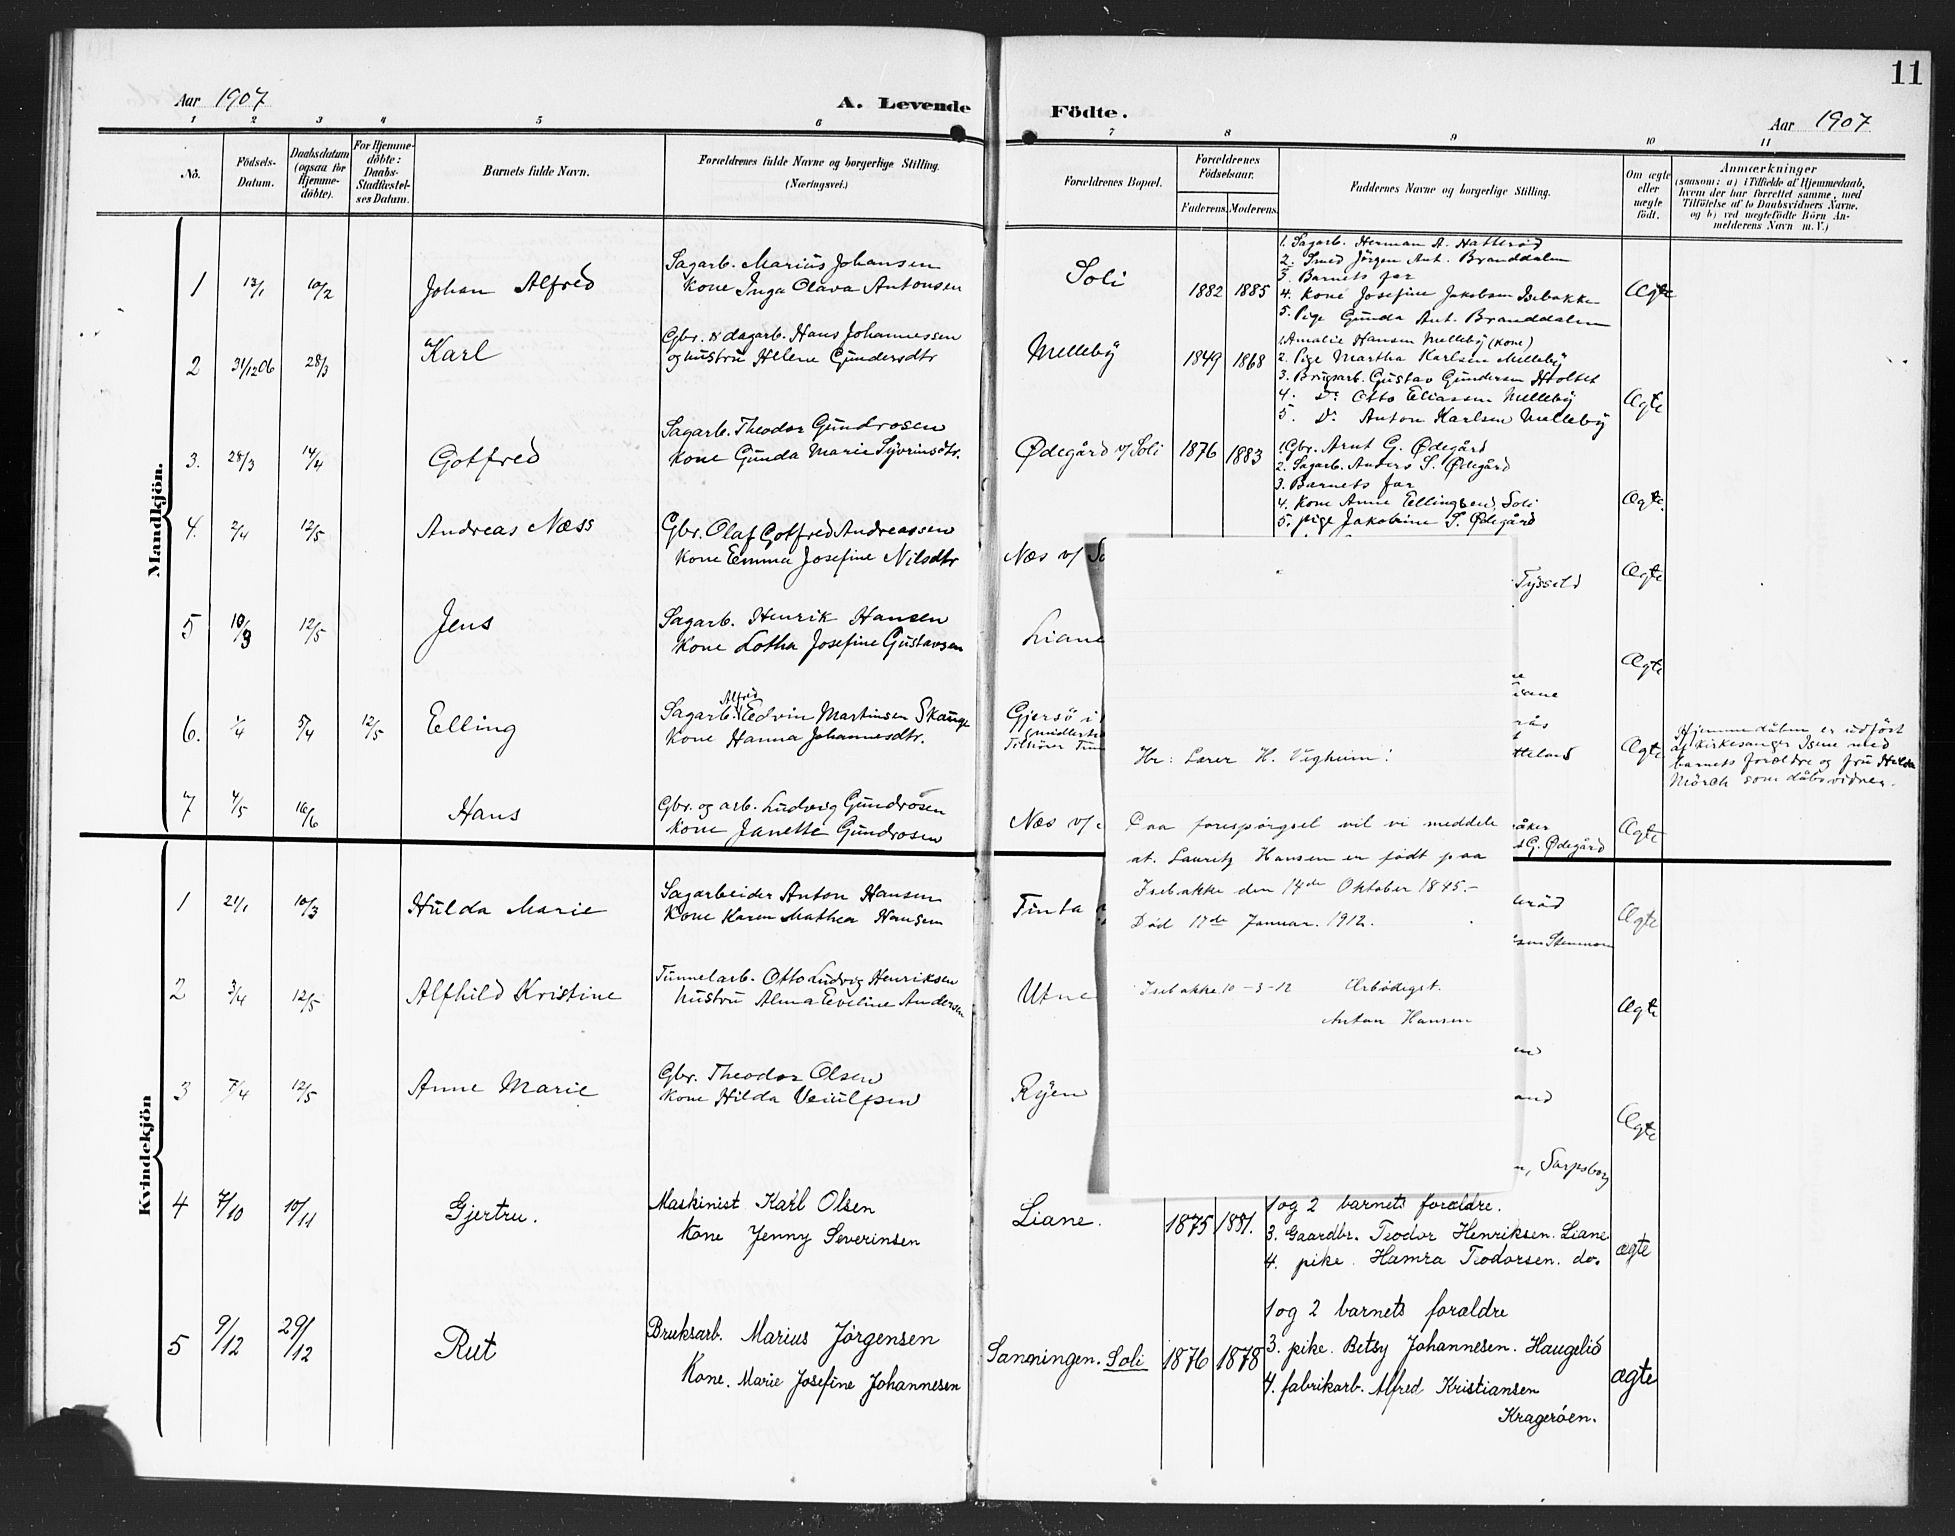 11
Aar 1907
A. Levende Födte.
Aar 1907
1 2 3 4 5 6 7 8 9 10 11
No.
Födsels-
Datum.
Daabsdatum
(ogsaa for
Hjemme-
döbte).
For Hjemme-
döbte:
Daabs-
Stadfæstel-
ses Datum.
Barnets fulde Navn.
Forældrenes fulde Navne og borgerlige Stilling.
(Næringsvei.)
Forældrenes Bopæl.
Forældrenes
Födselsaar.
Faderens. Moderens.
Faddernes Navne og borgerlige Stilling.
Om ægte
eller
uægte
födt.
Anmærkninger
(saasom: a) i Tilfælde af Hjemmedaab,
hvem der har forrettet samme, med
Tilföielse af to Daabsvidners Navne.
og b) ved uægtefödte Börn An-
melderens Navn m. V.)
Mandkjön.
1 13/1 10/2 Johan Alfred
Sagarb. Marius Johansen
Kone Inga Olava Antonsen
Soli 1882 1885
1. Sagarb. Herman A. Hatteröd
2. Smed Jörgen Ant. Branddalen
3. Barnets far
4. Kone Josefine Jakobsen Isebakke
5. Pige Gunda Ant. Branddalen
Ægte
2 31/12 06 28/3 Karl
Gbr. & dagarb. Hans Johannessen
og hustru Helene Gundersdtr
Melleby 1849 1868
1. Amalie Hansen Melleby (kone)
2. Pige Martha Karlsen Melleby
3. Brugsarb. Gustav Gundersen Holtet
4. Do Otto Eliassen Melleby
5. Do Anton Karlsen Melleby
Ægte
3. 28/3 14/4 Gotfred
Sagarb. Theodor Gundrosen
Kone Gunda Marie Syvrinsdtr.
Ødegård v/Soli 1876 1883
1. Gbr. Arnt G. Ødegård
2. Sagarb. Anders S. Ødegård
3. Barnets far
4. Kone Anne Ellingsen, Soli
5. pige Jakobine S. Ødegård
Ægte.
4. 2/4 12/5 Andreas Næss
Gbr. Olaf Gotfred Andreassen
Kone Emma Josefine Nilsdtr
Næs v/ So
Tysseld
Ægte
5 12/5 Jens
Sagarb. Henrik Hansen
Kone Lotha Josefine Gustavsen
Liane
Ægte
6. 1/4 5/4 12/5 Elling
Alfred
Sagarb. Edvin Martinsen Skauge
Kone Hanna Johannesdtr.
Gjersö i
(midlertid
Tilhörer Tun
Ægte
Hjemmedåben er udfört
af Kirkesanger Isene med
barnets forældre og fru Hilda
Mörch som dåbsvidner.
7 4/5 16/6 Hans
Gbr. og arb. Ludvig Gundrosen
Kone Janette Gundrosen
Næs v/
G. Ødegård
Ægte
Hr: Lærer H. Vigheim!
Paa forespørgsel vil vi meddele
at. Lauritz Hansen er født paa
Isebakke den 14de Oktober 1845.-
Død 17de Januar. 1912.
Isebakke 10-3-12 Ærbødigst.
Anton Hansen
Kvindekjön
1 21/1 10/3 Hulda Marie
Sagarbeider Anton Hansen
Kone Karen Mathea Hansen
Tinta
Ægte
2 3/4 12/5 Alfhild Kristine
Tunnelarb. Otto Ludvig Henriksen
hustru Alma Eveline Andersen
Utne
Ægte
3 7/4 12/5 Anne Marie
Gbr. Theodor Olsen
Kone Hilda Veiulfsen
Ryen
Sarpsborg
Ægte
4 7/10 10/11 Gjertru.
Maskinist Karl Olsen
Kone Jenny Severinsen
Liane. 1875 1881.
1 og 2 barnets forældre.
3. Gaardbr. Teodor Henriksen. Liane
4. pike. Hamra Teodorsen. do.
ægte
5 9/12 29/12 Rut
Bruksarb. Marius Jörgensen
Kone. Marie Josefine Johannesen
Sanningen. Soli 1876 1878
1 og 2 barnets forældre
3. pike. Betsy Johannesen. Haugelid
4. fabrikarb. Alfred Kristiansen
Kragerøen.
ægte